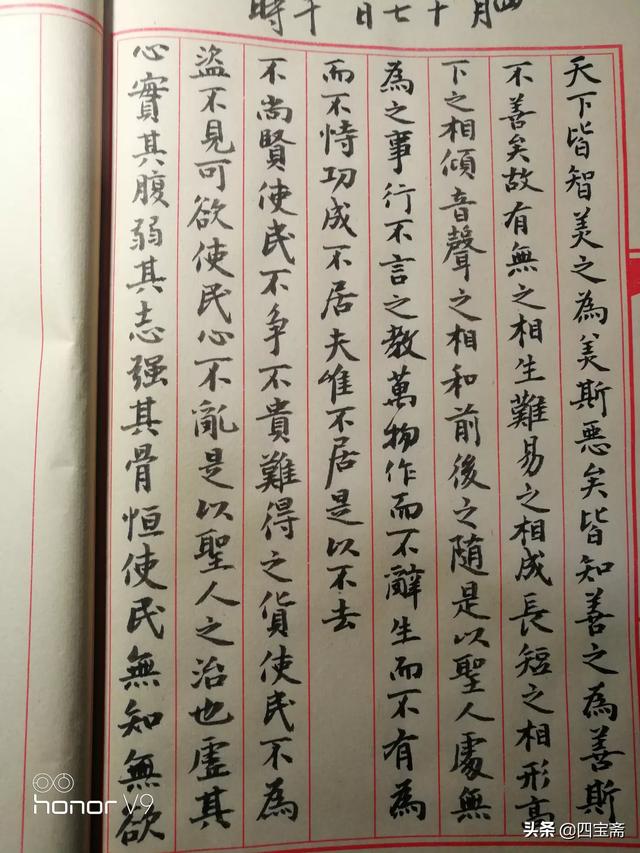 四月十七日十時
天下皆智美之為美斯惡矣皆知善之為善斯
不善矣故有無之相生難易之相成長短之相形高
下之相傾音聲之相和前後之隨是以聖人處無
為之事行不言之教萬物作而不辭生而不有為
而不恃功成不居夫唯不居是以不去
不尚賢使民不争不貴難得之貨使民不為
盜不見可欲使民心不亂是以聖人之治也虛其
心實其腹弱其志强其骨恒使民無知無欲
honor V9
头条 @四宝斋